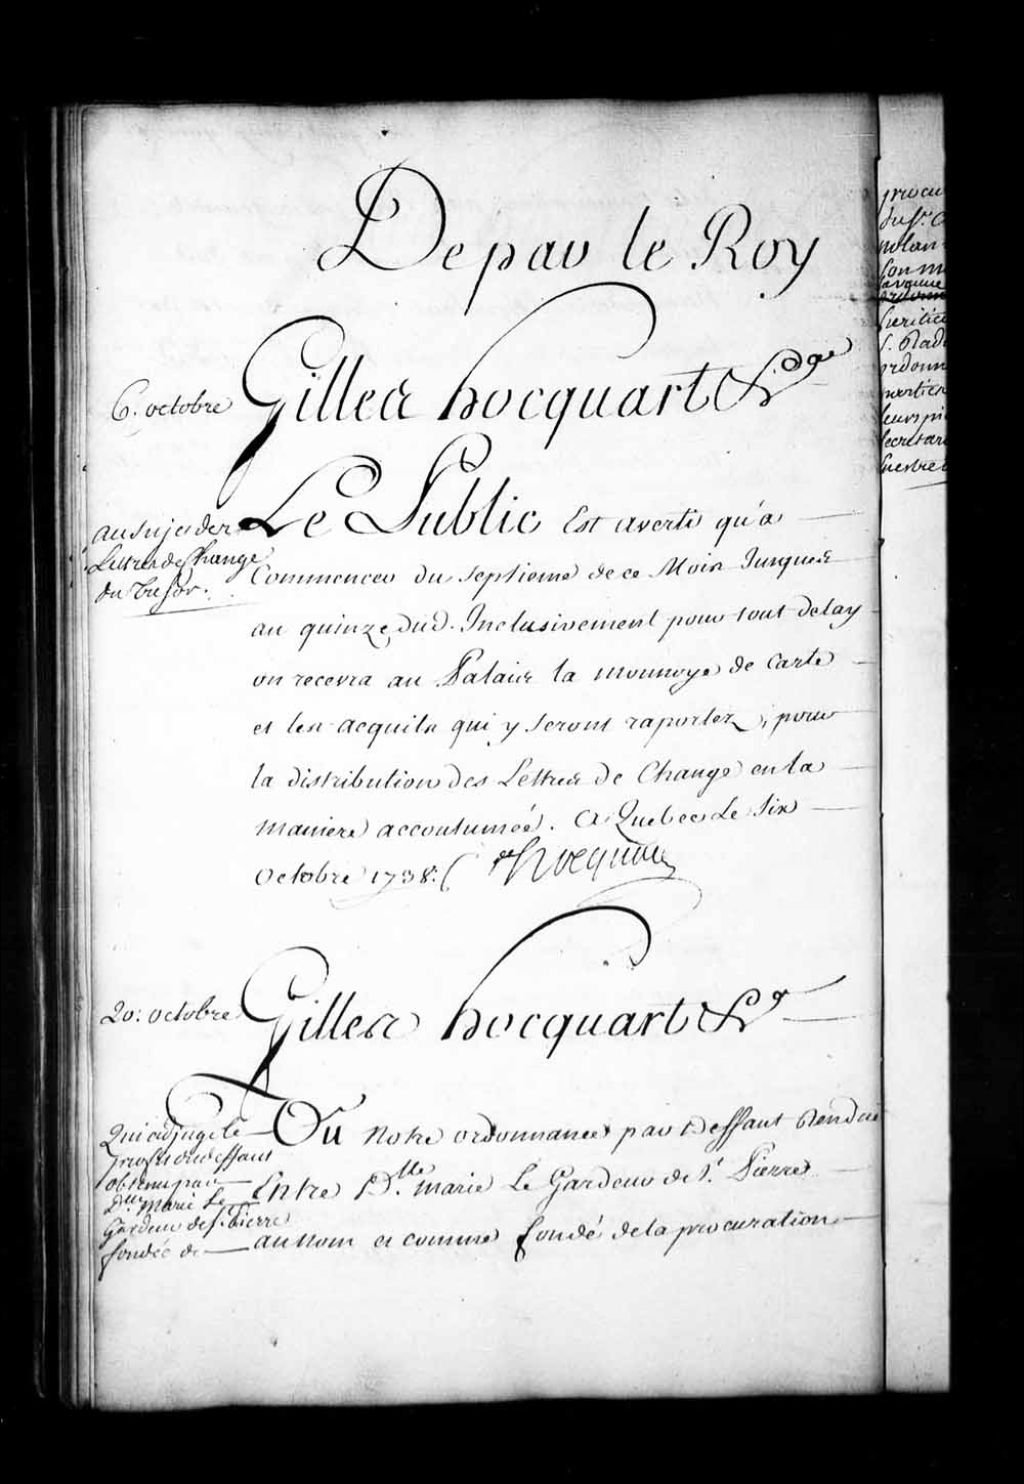 De par le Roy
6. octobre
Gilles hocquart &a
au sujet des
Lettres de Change
du Tresor.
Le Public Est averti qu'a
Commencer du septieme de ce Mois Jusques
au quinze dud. Inclusivement pour tout delay
on recevra au Palais la monnoye de Carte
et les acquits qui y seront raportez, pour
la distribution des Lettres de Change en la
maniere accoutumée. A Quebec Le Six
Octobre 1738. Hocquart
20: octobre
Gilles hocquart &a
Qui adjuge le
proffit du deffaut
obtenu par
Dlle Marie Le
Gardeur de St. Pierre
fondée de
Vu Notre ordonnance par Deffaut Rendue
Entre Dlle. marie Le Gardeur de St. Pierre
au nom et comme fondé de la procuration
procu